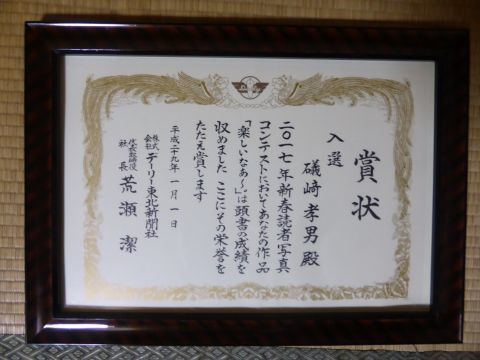 賞状
入選
礒﨑孝男殿
二〇一七年新春読者写真
コンテストにおいてあなたの作品
「楽しいなあ〜」は頭書の成績を
収めました ここにその栄誉を
たたえ賞します
平成二十九年一月一日
株式会社デーリー東北新聞社
代表取締役社長 荒瀬潔